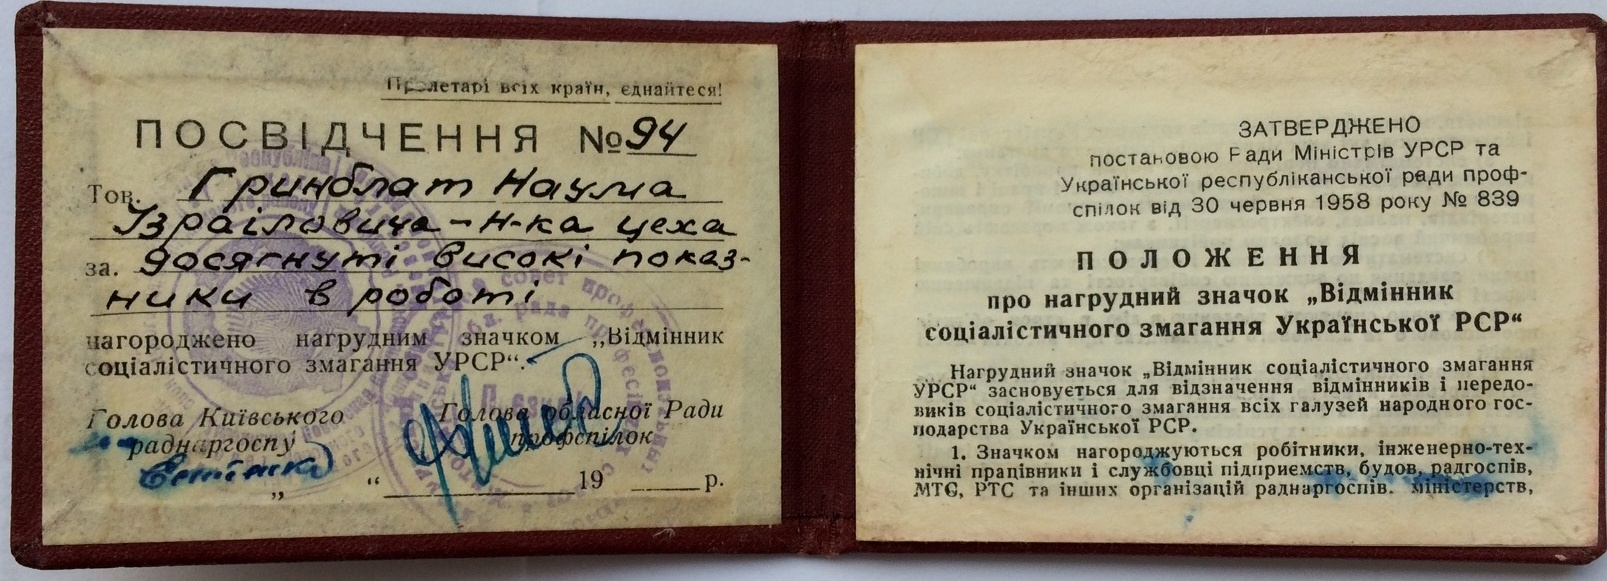 Пролетарі всіх країн, єднайтеся!
ПОСВІДЧЕННЯ № 94
Тов. Гринблат Наума
Ізраіловича - Н-ка цеха
за. досягнуті високі показ-
ники в роботі
нагороджено нагрудним значком „Відмінник
соціалістичного змагання УРСР“.
Голова Київського
раднаргоспу
Голова обласної Ради
профспілок
„ “ 19 р.
ЗАТВЕРДЖЕНО
постановою Ради Міністрів УРСР та
Української республіканської ради проф-
спілок від 30 червня 1958 року № 839
ПОЛОЖЕННЯ
про нагрудний значок „Відмінник
соціалістичного змагання Української РСР“
Нагрудний значок „Відмінник соціалістичного змагання
УРСР“ засновується для відзначення відмінників і передо-
виків соціалістичного змагання всіх галузей народного гос-
подарства Української РСР.
1. Значком нагороджуються робітники, інженерно-тех-
нічні працівники і службовці підприємств, будов, радгоспів,
МТС, РТС та інших організацій раднаргоспів. міністерств,